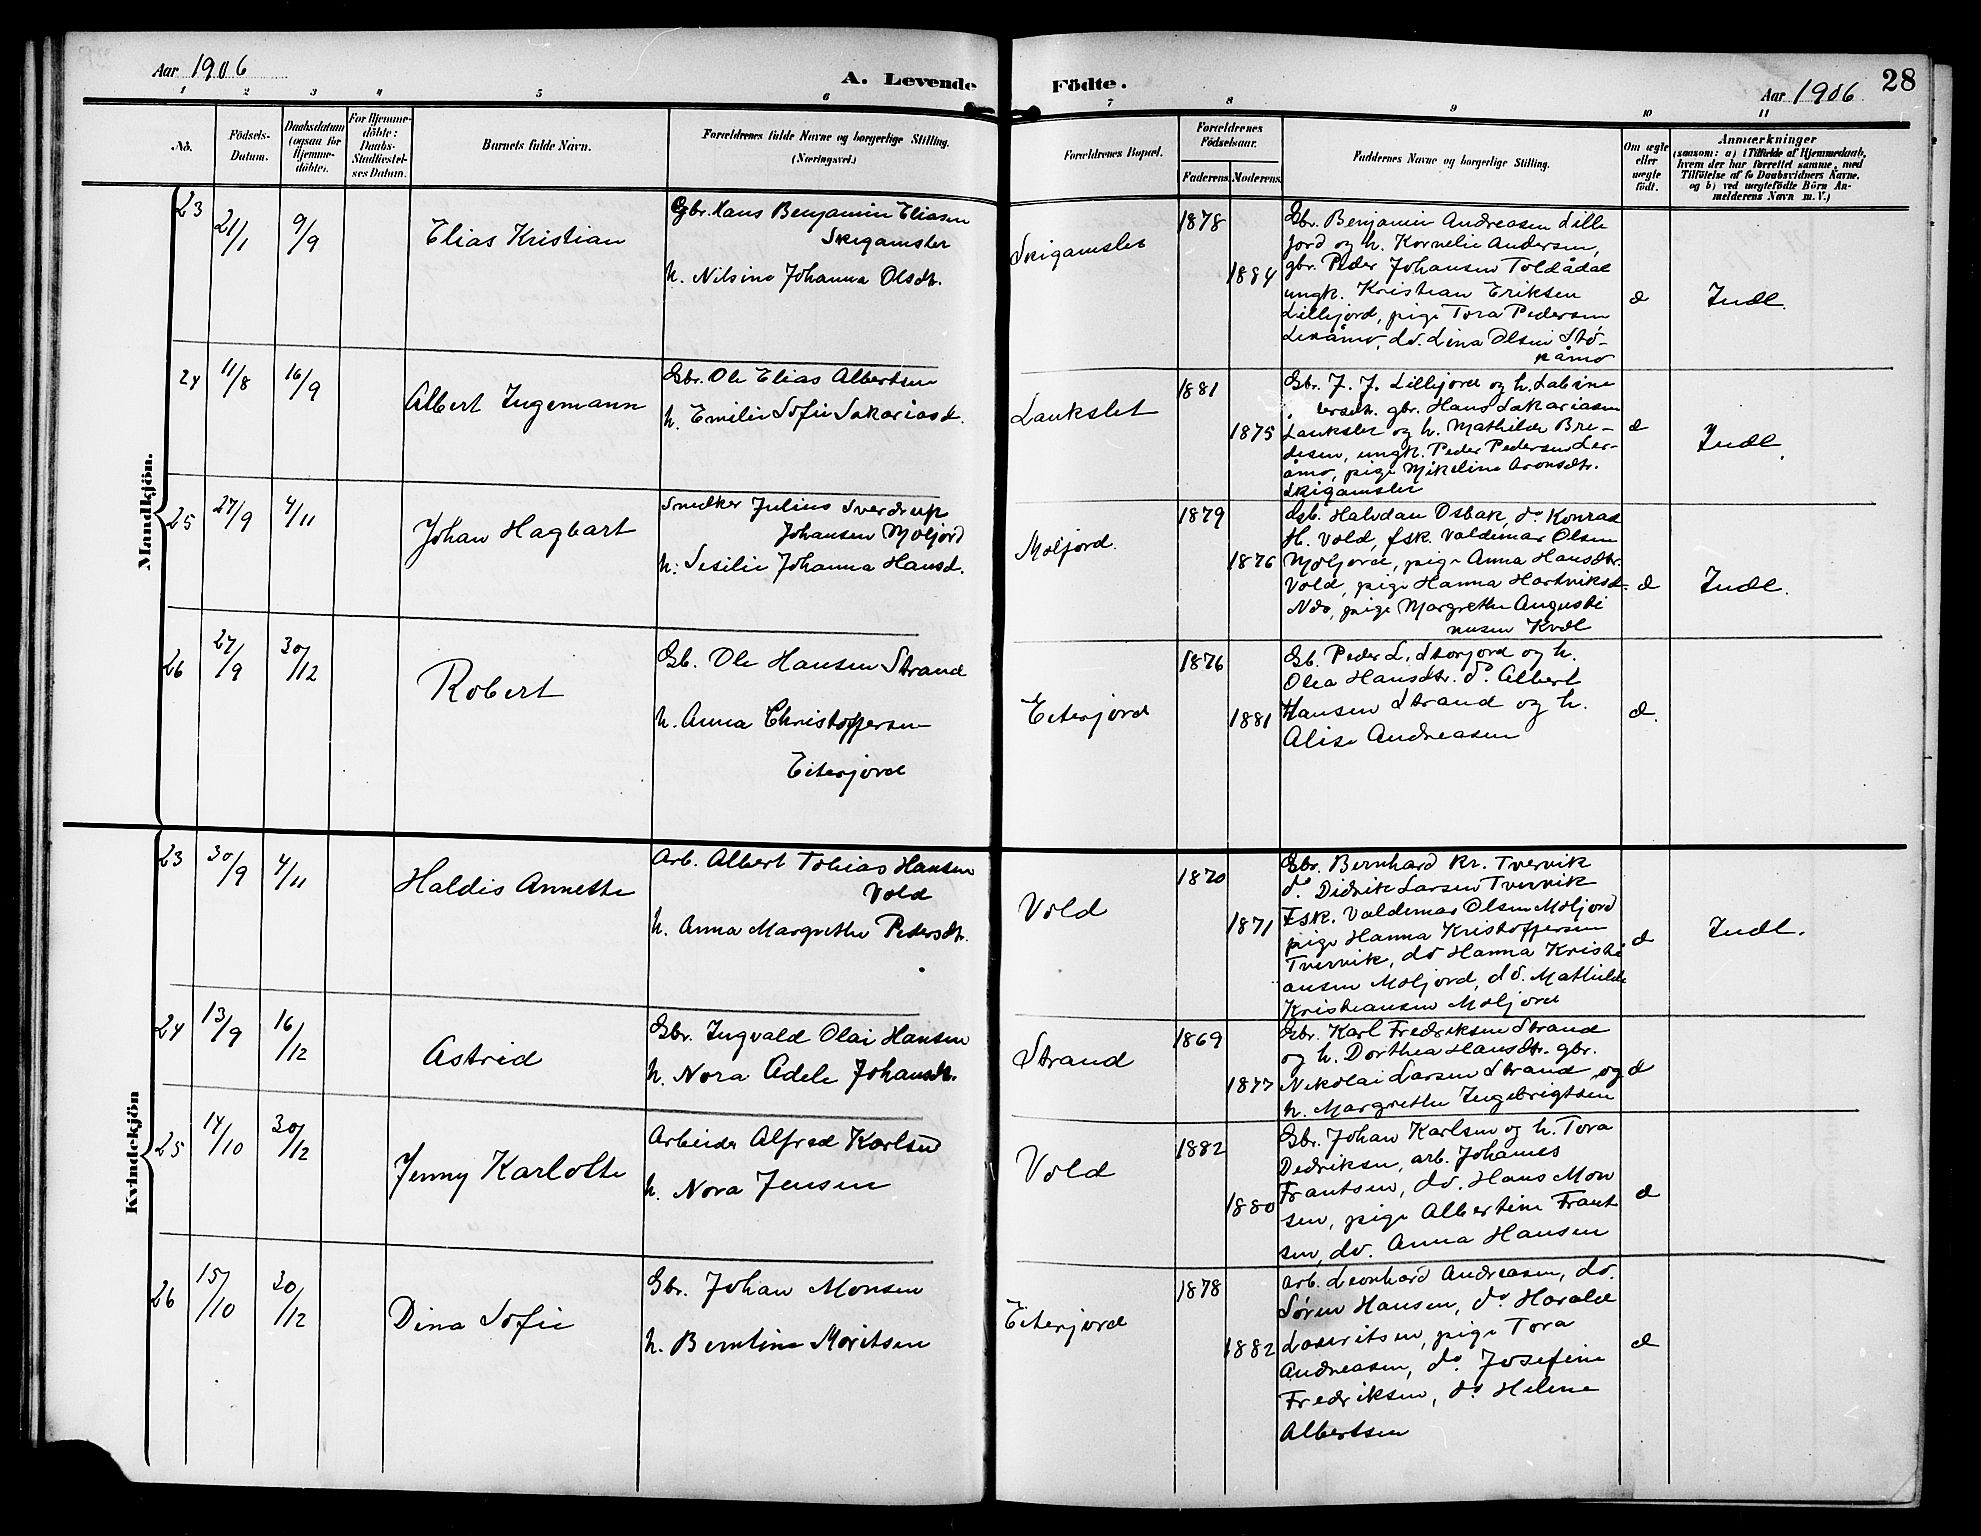 Aar 1906
A. Levende
Födte.
Aar 1906
28
1 2 3 4 5 6 7 8 9 10 11
No.
Födsels-
Datum.
Daabsdatum
(ogsaa for
Hjemme-
döbte).
For Hjemme-
döbte:
Daabs-
Stadfæstel-
ses Datum.
Barnets fulde Navn.
Forældrenes fulde Navne og borgerlige Stilling.
(Næringsvei.)
Forældrenes Bopæl.
Forældrenes
Födselsaar.
Faderens. Moderens.
Faddernes Navne og borgerlige Stilling.
Om ægte
eller
uægte
födt.
Anmærkninger
(saasom: a) i Tilfælde af Hjemmedaab,
hvem der har forrettet samme, med
Tilföielse af to Daabsvidners Navne.
og b) ved uægtefödte Börn An-
melderens Navn m. V.)
Mandkjön.
23
21/1
9/9
Elias Kristian
Gbr. Hans Benjamin Eliasen
Skigamslet
h. Nilsine Johanna Olsdt.
Skigamslet
1878
1884
Gbr. Benjamin Andreasen Lille
fjord og h. Kornelie Andersen,
gbr. Peder Johansen Toldådal
ungk. Kristian Eriksen
Lillefjord, pige Tora Pedersen
Leråmo, do. Lina Olsen Stö-
råmo
e
Indl.
24
11/8
16/9
Albert Ingemann
Gbr. Ole Elias Albertsen
h. Emilie Sofie Sakariasd.
Laukslet
1881
1875
Gbr. J. J. Lillejord og h. Sabine
gbr. Hans Sakariasen
Laukslet og h. Mathilde Bre-
desen, ungk. Peder Pedersen Ler-
åmo, pige Mikeline Aronsdtr.
Skigamslet
e
Indl.
25
27/9
4/11
Johan Hagbart
Snedker Julius Sverdrup
Johansen Moljord
h: Sesilie Johanna Hansd.
Moljord.
1879
1876
Gb. Halvdan Osbak, do Konrad
H. Vold, fsk. Valdemar Olsen
Moljord, pige Anna Hansdtr.
Vold, pige Hanna Hartviksd.
Næs, pige Margrethe Augusti
nusen Kvæl
e
Indl.
26
27/9
30/12
Robert
Gb. Ole Hansen Strand
h. Anna Christoffersen
Eiterjord
Eiterjord
1876
1881
Gb. Peder L. Storjord og h.
Olea Hansdtr. do. Albert
Hansen Strand og h.
Alise Andreasen
e.
Kvindekjön
23
30/9
4/11
Haldis Annette
Arb. Albert Tobias Hansen
Vold
h. Anna Margrethe Pedersdt.
Vold
1870
1871
Gbr. Bernhard Kr. Tvervik
do. Didrik Larsen Tvervik
Fsk. Valdemar Olsen Moljord
pige Hanna Kristoffersen
Tvervik, do Hanna Kristi
ansen Moljord, do. Mathilde
Kristiansen Moljord
e
Indl.
24
13/9
16/12
Astrid
Gbr. Ingvald Olai Hansen
h. Nora Adele Johansdt.
Strand
1869
1877
Gbr. Karl Fredriksen Strand
og h. Dorthea Hansdtr. gbr.
Nikolai Larsen Strand og
h. Margrethe Ingebrigtsen
e
25
14/10
30/12
Jenny Karlotte
Arbeider Alfred Karlsen
h. Nora Jensen
Vold
1882
1880
Gbr. Johan Karlsen og h. Tora
Dedriksen, arb. Johannes
Frantsen, do. Hans Mon
sen, pige Albertine Frant
sen, do. Anna Hansen
e
26
15/10
30/12
Dina Sofie
Gbr. Johan Monsen
h. Berntine Moritsen
Eiterjord
1878
1882
Arb. Leonhard Andreasen, do.
Sören Hansen, do Harald
Lauritsen, pige Tora
Andreasen, do. Josefine
Fredriksen, do Helene
Albertsen
e